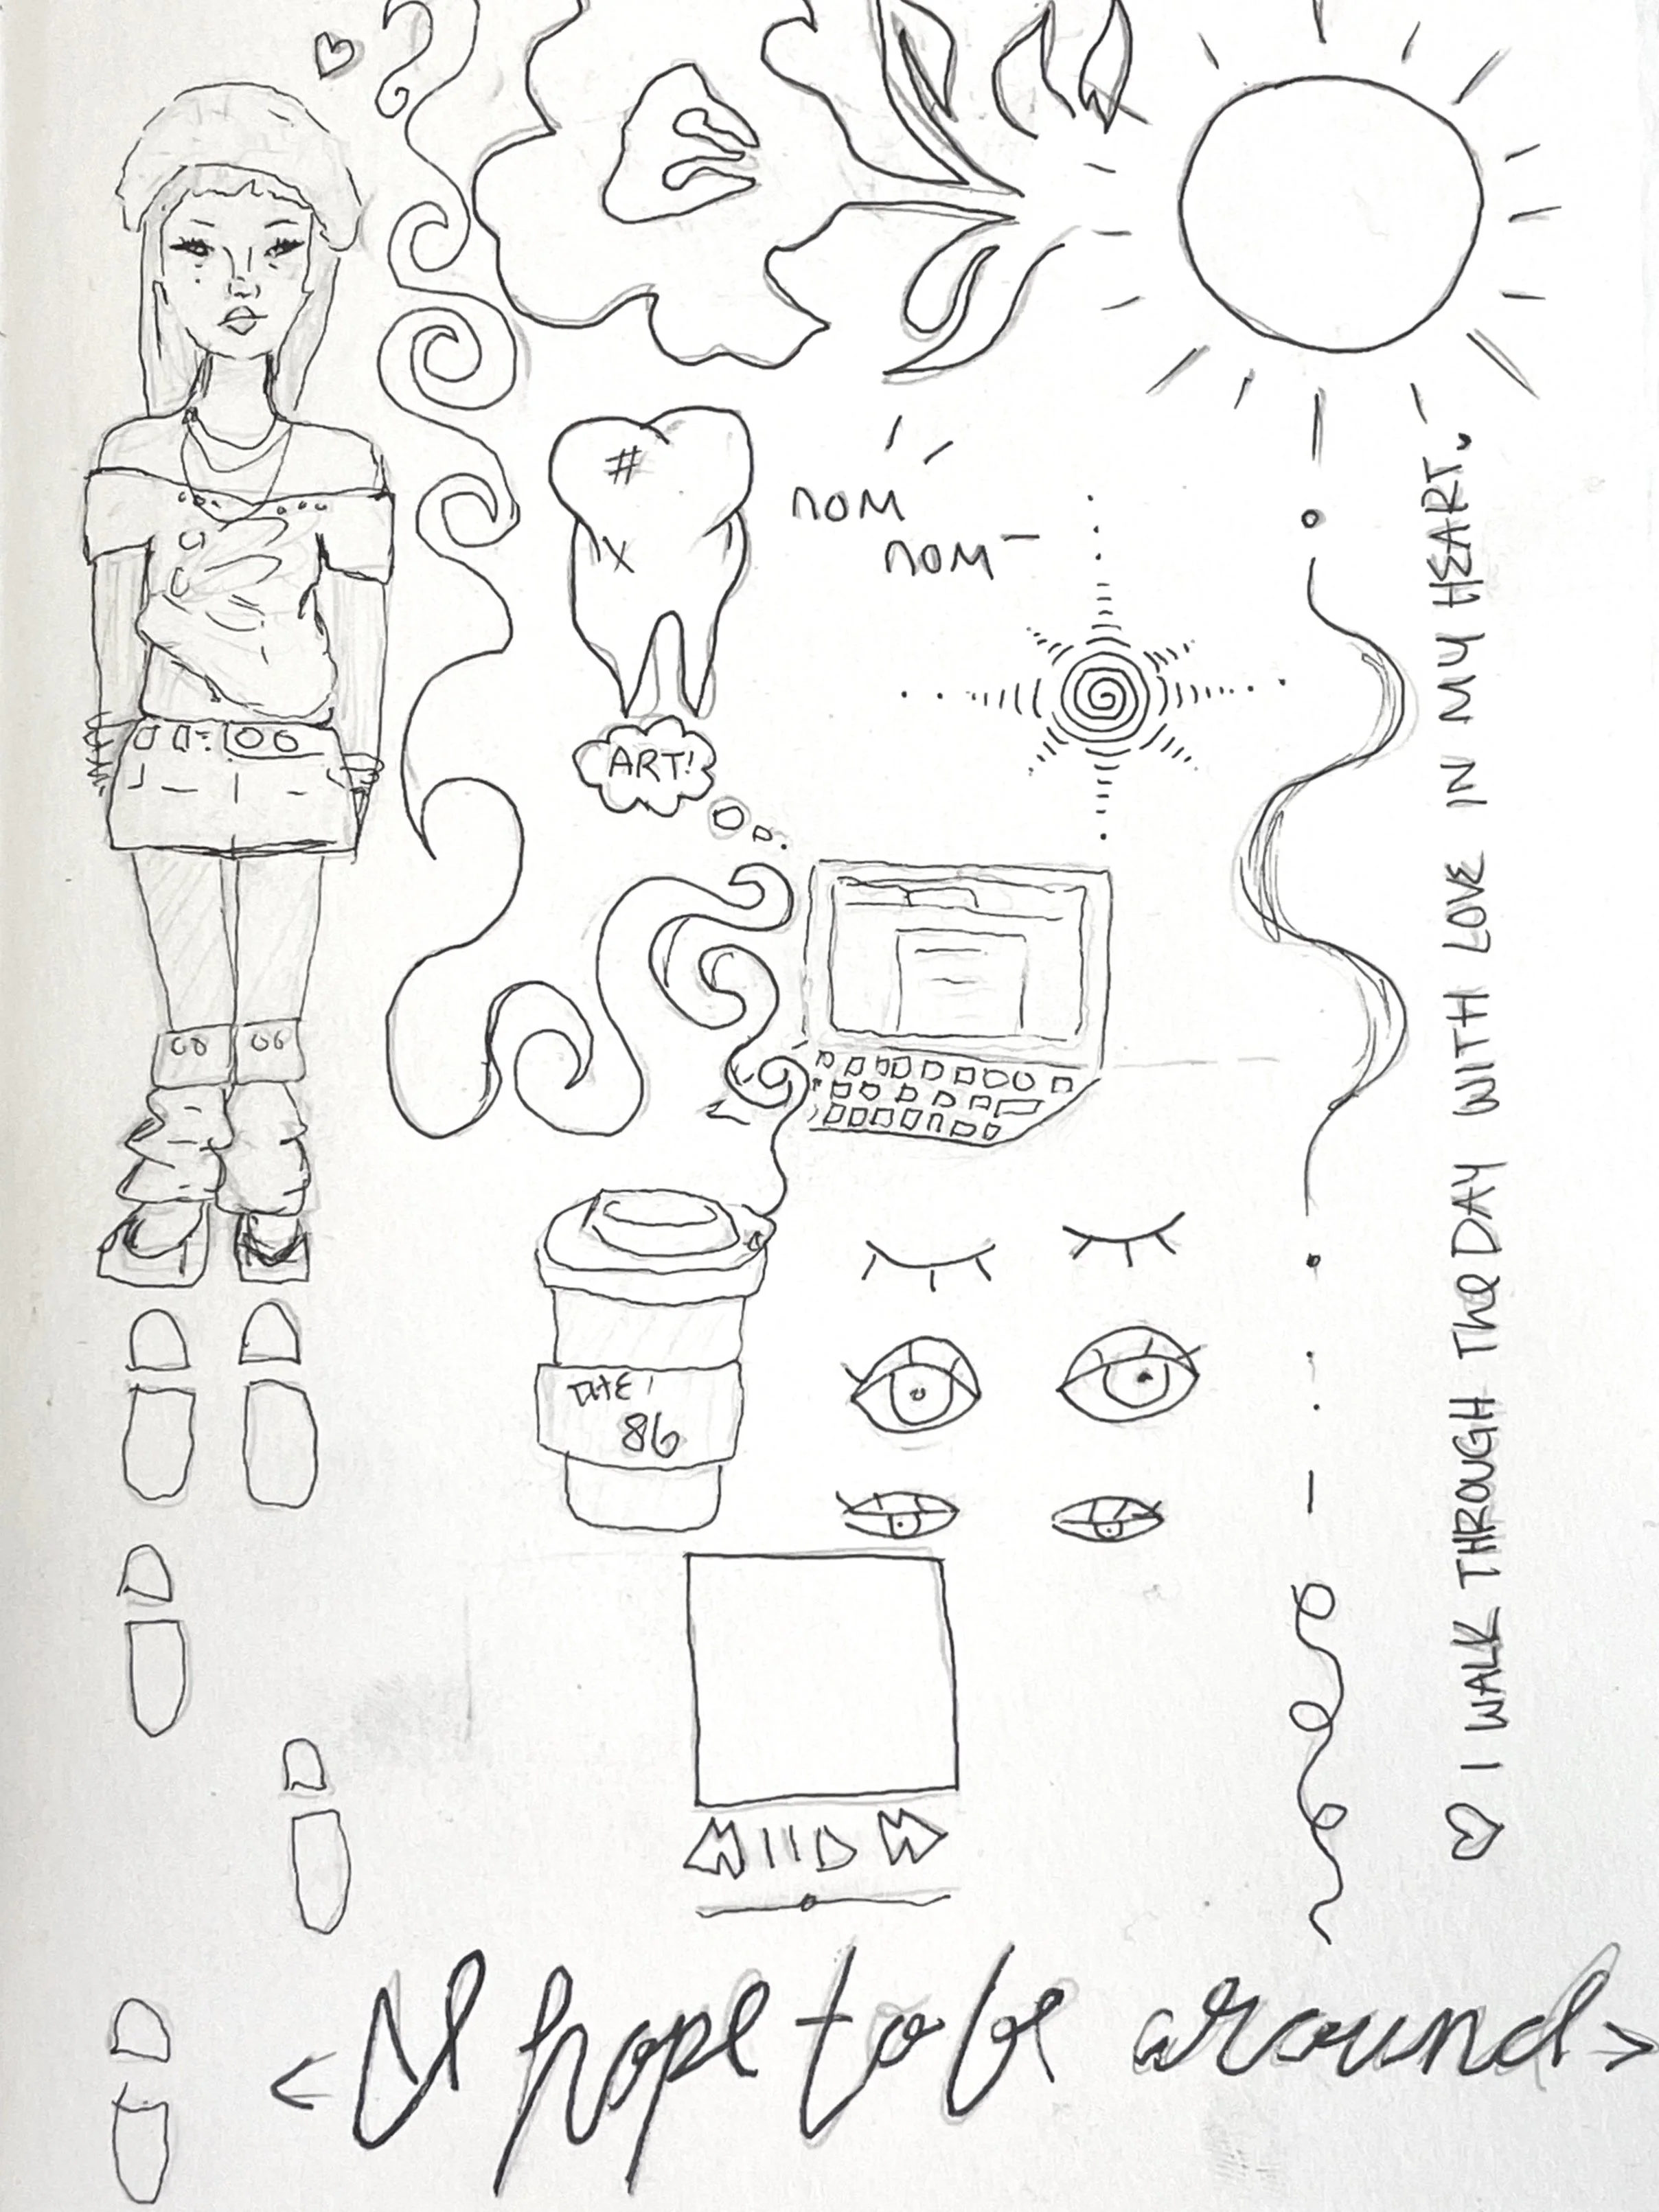 nom
nom
#
x
ART!
86
♡ I WALK THROUGH The DAY WITH LOVE IN MY HEART.
<I hope to be around>